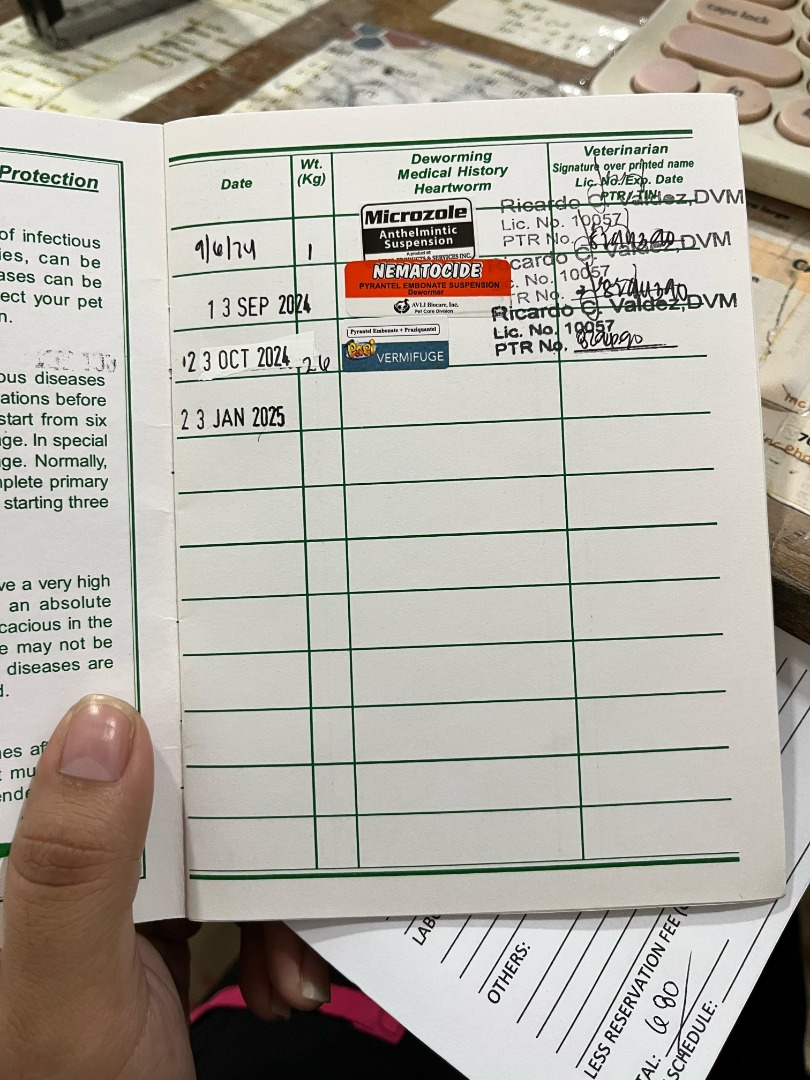 caps lock
fn
Protection
of infectious
ies, can be
ases can be
ect your pet
n.
ous diseases
ations before
start from six
ge. In special
ge. Normally,
nplete primary
starting three
ve a very high
an absolute
cacious in the
e may not be
diseases are
d.
nes af
t mu
ende
Date
Wt.
(Kg)
Deworming
Medical History
Heartworm
Veterinarian
Signature over printed name
Lic. No./Exp. Date
PTR/TIN
9/6/24
1
Microzole
Anthelmintic
Suspension
Ricardo C. Valdez, DVM
Lic. No. 10057
PTR No.
13 SEP 2024
NEMATOCIDE
PYRANTEL EMBONATE SUSPENSION
Dewormer
AVLI Biocare, Inc.
Pet Care Division
icardo C. Valdez, DVM
c. No. 10057
TR No.
23 OCT 2024
2.6
Pyrantel Embonate + Praziquantel
VERMIFUGE
Ricardo C. Valdez, DVM
Lic. No. 10057
PTR No.
23 JAN 2025
OTHERS:
LESS RESERVATION FEE
AL: 680
SCHEDULE: